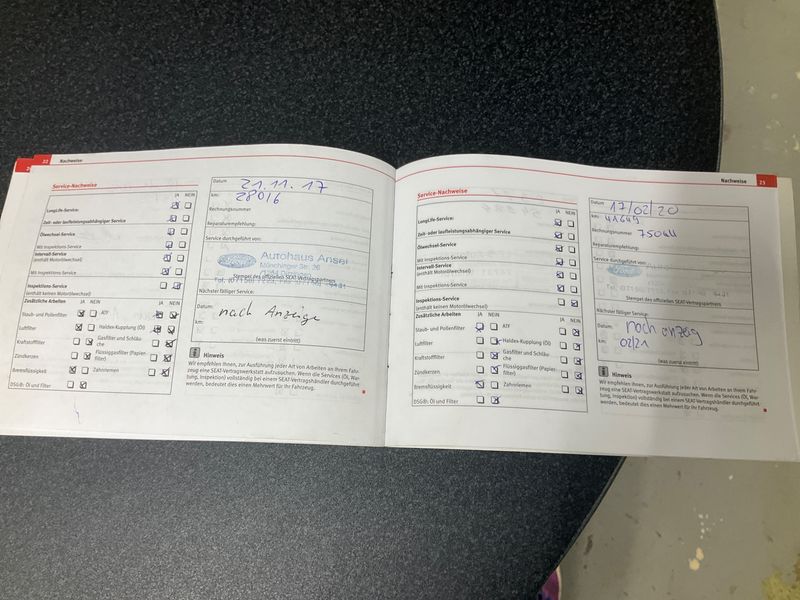 22 Nachweise
Service-Nachweise
JA NEIN
LongLife-Service:
Zeit- oder laufleistungsabhängiger Service
Ölwechsel-Service
Mit Inspektions-Service
Intervall-Service
(enthält Motorölwechsel)
Mit Inspektions-Service
Inspektions-Service
(enthält keinen Motorölwechsel)
Zusätzliche Arbeiten JA NEIN JA NEIN
Staub- und Pollenfilter ATF
Luftfilter Haldex-Kupplung (Öl)
Kraftstofffilter Gasfilter und Schläu-
che
Zündkerzen Flüssiggasfilter (Papier-
filter)
Bremsflüssigkeit Zahnriemen
DSG®: Öl und Filter
Datum 21.11.17
km: 28016
Rechnungsnummer
Reparaturempfehlung:
Service durchgeführt von:
Autohaus Ansel
Münchinger Str. 26
Stempel des offiziellen SEAT-Vertragspartners
Nächster fälliger Service:
Datum: nach Anzeige
km:
(was zuerst eintritt)
Hinweis
Wir empfehlen Ihnen, zur Ausführung jeder Art von Arbeiten an Ihrem Fahr-
zeug eine SEAT-Vertragswerkstatt aufzusuchen. Wenn die Services (Öl, War-
tung, Inspektion) vollständig bei einem SEAT-Vertragshändler durchgeführt
werden, bedeutet dies einen Mehrwert für Ihr Fahrzeug.
Nachweise 23
Service-Nachweise
JA NEIN
LongLife-Service:
Zeit- oder laufleistungsabhängiger Service
Ölwechsel-Service
Mit Inspektions-Service
Intervall-Service
(enthält Motorölwechsel)
Mit Inspektions-Service
Inspektions-Service
(enthält keinen Motorölwechsel)
Zusätzliche Arbeiten JA NEIN JA NEIN
Staub- und Pollenfilter ATF
Luftfilter Haldex-Kupplung (Öl)
Kraftstofffilter Gasfilter und Schläu-
che
Zündkerzen Flüssiggasfilter (Papier-
filter)
Bremsflüssigkeit Zahnriemen
DSG®: Öl und Filter
Datum 17/02/20
km: 41649
Rechnungsnummer
Reparaturempfehlung:
Service durchgeführt von:
Stempel des offiziellen SEAT-Vertragspartners
Nächster fälliger Service:
Datum: nach anzeig
km: 02/21
(was zuerst eintritt)
Hinweis
Wir empfehlen Ihnen, zur Ausführung jeder Art von Arbeiten an Ihrem Fahr-
zeug eine SEAT-Vertragswerkstatt aufzusuchen. Wenn die Services (Öl, War-
tung, Inspektion) vollständig bei einem SEAT-Vertragshändler durchgeführt
werden, bedeutet dies einen Mehrwert für Ihr Fahrzeug.